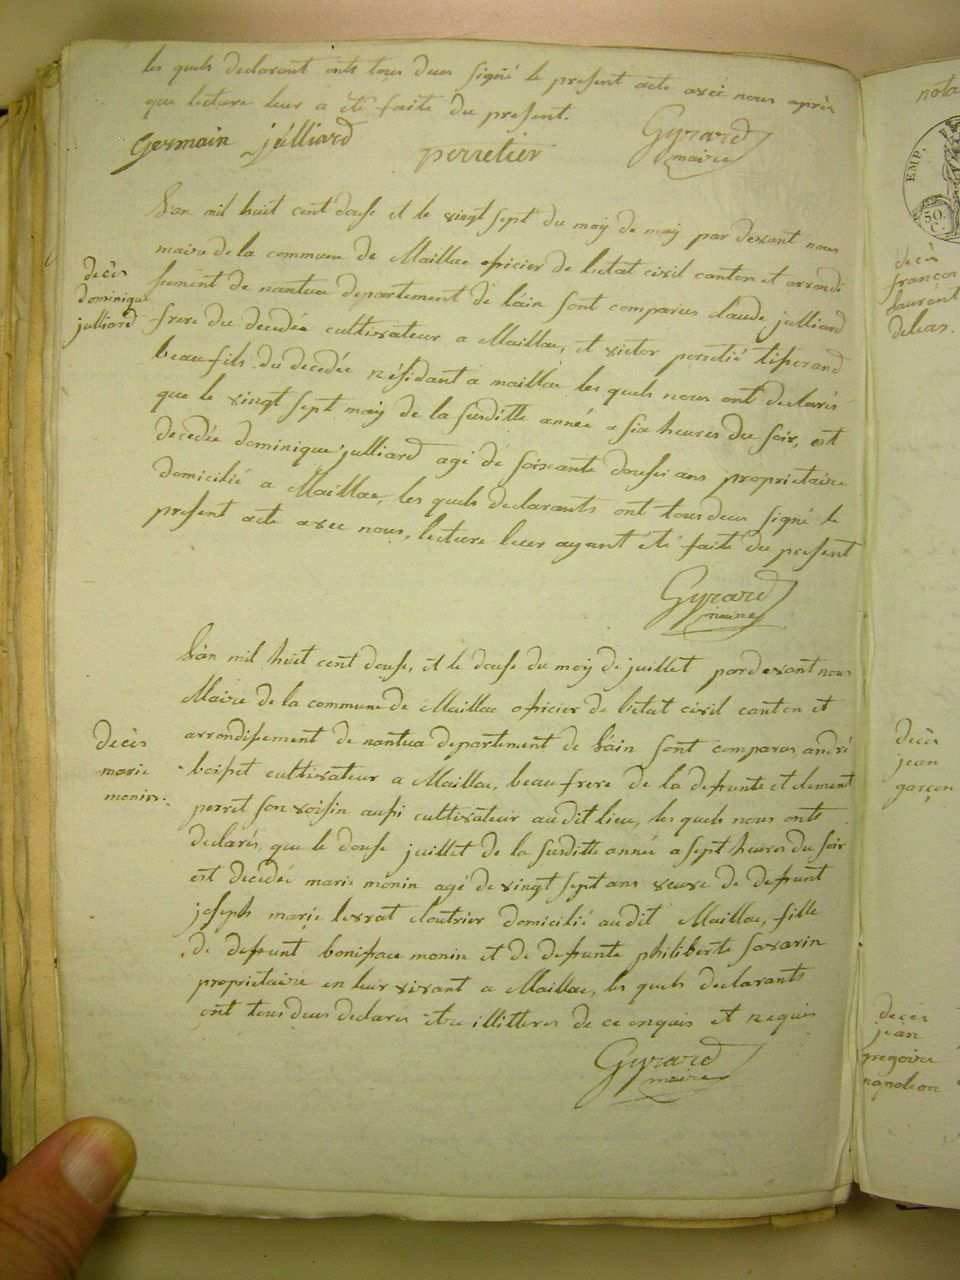 les quels declarant onts tous deux signé le present acte avec nous après
que lecture leur a été faite du present.
Germain julliard perretier Gyrard
maire
decès
dominique
julliard
L'an mil huit cent douse et le vingt sept du moy de may par devant nous
maire de la commune de Maillac oficier de l'etat civil canton et arrondi
sement de nantua departement de l'ain sont comparus claude julliard
frere du decedée cultivateur a Maillac, et victor perretié tiserand
beaufils du decedée résidant a maillac les quels nous ont declarés
que le vingt sept may de la susditte année a six heures du soir, est
decedée dominique julliard agé de soixante douse ans proprietaire
domicilié a Maillac, les quels declarants ont tous deux signé le
present acte avec nous, lecture leur ayant été faite du present
Gyrard
maire
decès
marie
monin.
L'an mil huit cent douse, et le douse du moy de juillet par devant nous
Maire de la commune de Maillac oficier de l'etat civil canton et
arrondisement de nantua departement de L'ain sont comparus andré
cultivateur a Maillac, beau frere de la defunte et clement
perret son voisin aussi cultivateur au dit lieu, les quels nous onts
declarés, que le douse juillet de la susditte année a sept heures du soir
est decedée marie monin agé de vingt sept ans veuve de defunt
joseph marie levrat cloutrier domicilié au dit Maillac, fille
de defunt boniface monin et de defunte philiberte savarin
propriétaire en leur vivant a Maillac, les quels declarants
ont tous deux declarés etre illitteres de ce enquis et requis
Gyrard
maire
nota
EMP.
50.
C.
decès
françois
laurent
delias.
decès
jean
garçon
decès
jean
gregoire
napoleon